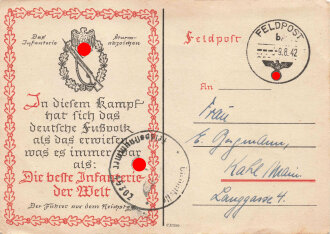 Das Sturm-
Infanterie abzeichen
In diesem Kampf
hat sich das
deutsche Fußvolk
als das erwiesen,
was es immer war
als:
Die beste Infanterie
der Welt
Der Führer vor dem Reichstag
Feldpost
FELDPOST
b
-9.8.42
An
Frau
E.
Kahl Main.
Langgasse 4.